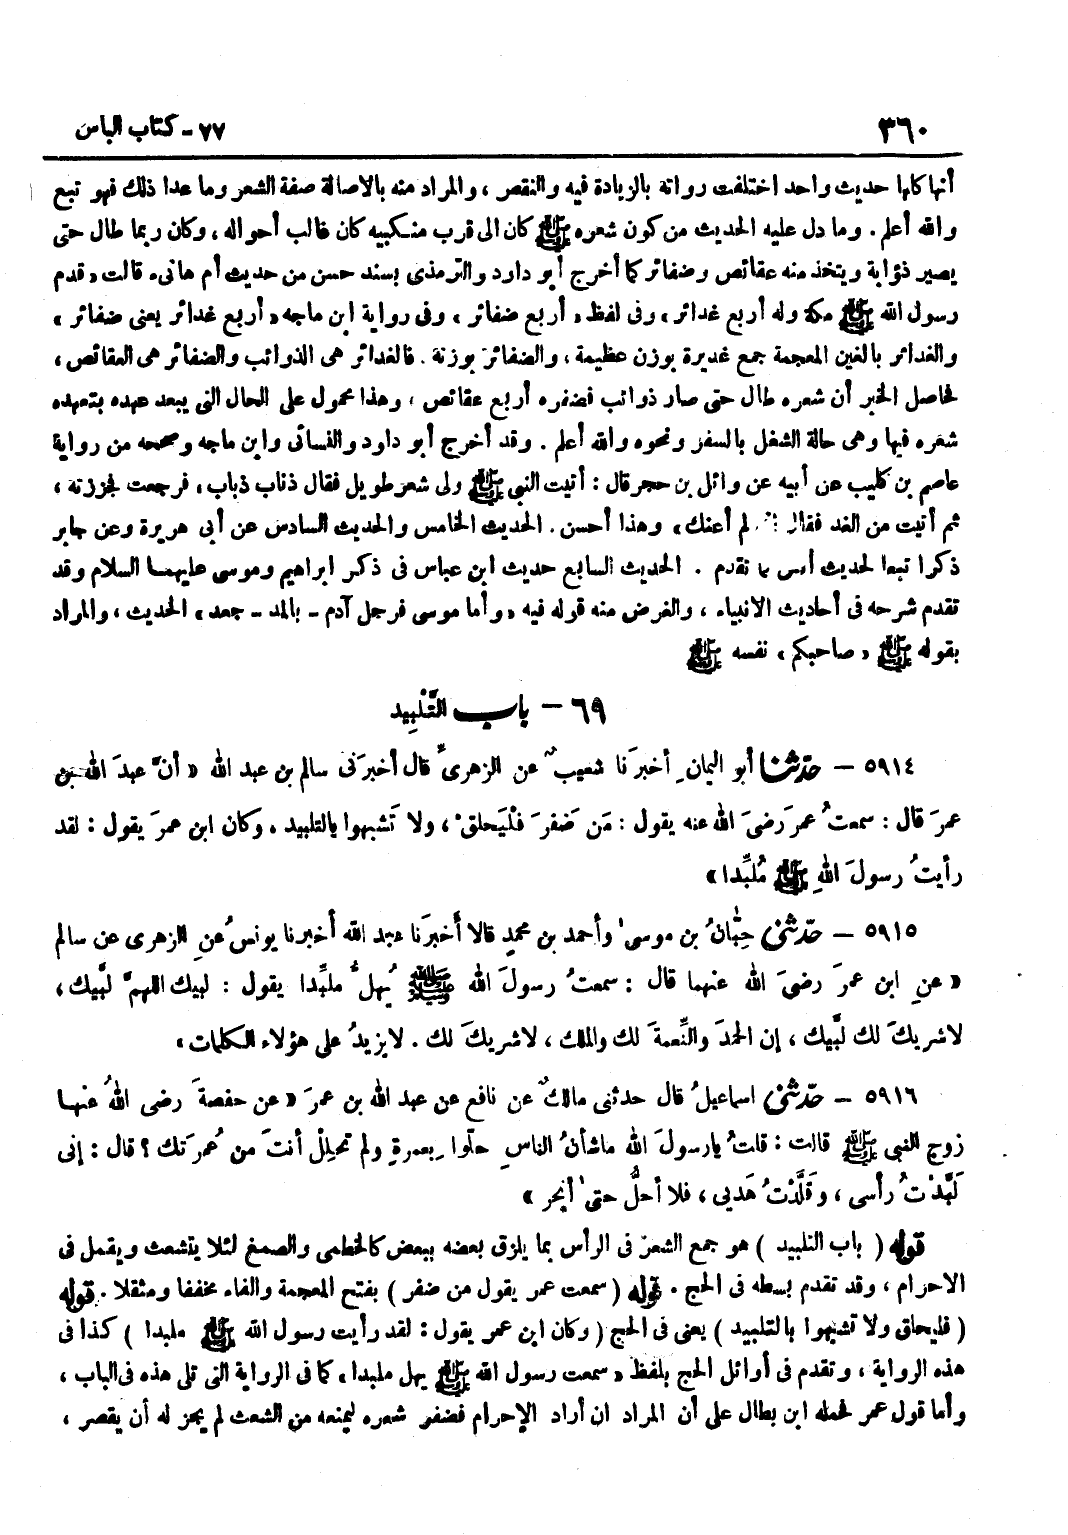 ٣٦٠ ٧٧ - كتاب الباس
أنها كلها حديث واحد اختلفت رواته بالزيادة فيه والنقص ، والمراد منه بالاصالة صفة الشعر وما عدا ذلك فهو تبع
والله أعلم . وما دل عليه الحديث من كون شعره ﷺ كان الى قرب منكبيه كان غالب أحواله ، وكان ربما طال حتى
يصير ذؤابة ويتخذ منه عقائص وضفائر كما أخرج أبو داود والترمذى بسند حسن من حديث أم هانىء قالت « قدم
رسول الله ﷺ مكة وله أربع غدائر ، وفى لفظ « أربع ضفائر ، وفى رواية ابن ماجه « أربع غدائر يعنى ضفائر »
والغدائر بالغين المعجمة جمع غديرة بوزن عظيمة ، والضفائر بوزنة . فالغدائر هى الذوائب والضفائر هى العقائص ،
فحاصل الخبر أن شعره طال حتى صار ذوائب فضفره أربع عقائص ، وهذا محمول على الحال التى يبعد عهده بتعهده
شعره فيها وهى حالة الشغل بالسفر ونحوه والله أعلم . وقد أخرج أبو داود والنسائى وابن ماجه وصححه من رواية
عاصم بن كليب عن أبيه عن وائل بن حجر قال : أتيت النبي ﷺ ولى شعر طويل فقال ذناب ذباب ، فرجعت فجززته ،
ثم أتيت من الغد فقال : لم أعنك ، وهذا أحسن . الحديث الخامس والحديث السادس عن أبى هريرة وعن جابر
ذكرا تبعا لحديث أنس كما تقدم . الحديث السابع حديث ابن عباس فى ذكر ابراهيم وموسى عليهما السلام وقد
تقدم شرحه فى أحاديث الانبياء ، والغرض منه قوله فيه « وأما موسى فرجل آدم - بالمد - جعد » الحديث ، والمراد
بقوله ﷺ « صاحبكم » نفسه ﷺ
٦٩ - باب التَّلْبِيد
٥٩١٤ - حدّثنا أبو اليمانِ أخبرَنا شعيبٌ عن الزهرىِّ قال أخبرَنى سالم بن عبد الله « أنَّ عبدَ الله بن
عمرَ قال : سمعتُ عمرَ رضىَ الله عنه يقول : مَن ضَفرَ فلْيَحلقْ ، ولا تَشبهوا بالتلبيد . وكان ابن عمرَ يقول : لقد
رأيتُ رسولَ اللهِ ﷺ مُلبِّدا »
٥٩١٥ - حدّثنى حِبّانُ بن موسىٰ وأحمد بن محمدٍ قالا أخبرَنا عبد الله أخبرنا يونسُ عنِ الزهرى عن سالم
« عنِ ابن عمرَ رضىَ الله عنهما قال : سمعتُ رسولَ الله ﷺ يُهلُّ ملبِّدا يقول : لبيك اللهمَّ لبَّيك ،
لاشريكَ لك لبَّيك ، إن الحمدَ والنِّعمةَ لك والملك ، لاشريكَ لك . لايزيدُ على هؤلاء الكلمات »
٥٩١٦ - حدّثنى اسماعيلُ قال حدثنى مالكٌ عن نافع عن عبد الله بن عمرَ « عن حفصةَ رضى اللهُ عنها
زوجِ النبي ﷺ قالت : قلتُ يارسولَ الله ماشأنُ الناسِ حلّوا بعمرةٍ ولم تحلِلْ أنتَ من عُمرَتك ؟ قال : إنى
لَبَّدْتُ رأسى ، وقَلَّدْتُ هَديِى ، فلا أحلُّ حتىٰ أنحر »
قوله ( باب التلبيد ) هو جمع الشعر فى الرأس بما يلزق بعضه ببعض كالخطمى والصمغ لئلا يتشعث ويقمل فى
الاحرام ، وقد تقدم بسطه فى الحج . قوله ( سمعت عمر يقول من ضفر ) بفتح المعجمة والفاء مخففا ومثقلا . قوله
( فليحلق ولا تشبهوا بالتلبيد ) يعنى فى الحج ( وكان ابن عمر يقول : لقد رأيت رسول الله ﷺ ملبدا ) كذا فى
هذه الرواية ، وتقدم فى أوائل الحج بلفظ « سمعت رسول الله ﷺ يهل ملبدا » كما فى الرواية التى تلى هذه فى الباب ،
وأما قول عمر فحمله ابن بطال على أن المراد ان أراد الإحرام فضفر شعره ليمنعه من الشعث لم يجز له أن يقصر ،